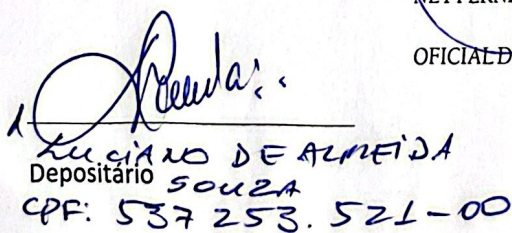 OFICIAL D
LUCIANO DE ALMEIDA
Depositário SOUZA
CPF: 537 253. 521-00